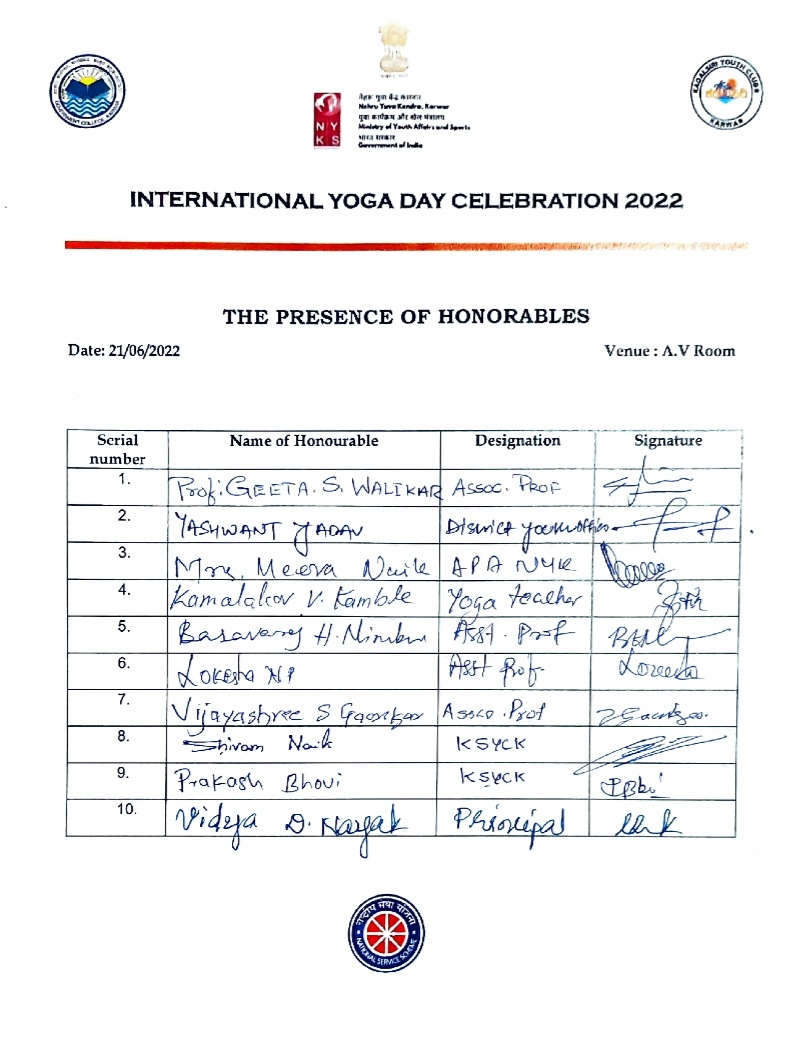 GOVERNMENT COLLEGE, KARWAR
नेहरू युवा केंद्र कारवार
Nehru Yuva Kendra, Karwar
युवा कार्यक्रम और खेल मंत्रालय
Ministry of Youth Affairs and Sports
भारत सरकार
Government of India
NY
KS
KADALSIRI YOUTH CLUB
KARWAR
INTERNATIONAL YOGA DAY CELEBRATION 2022
THE PRESENCE OF HONORABLES
Date: 21/06/2022 Venue : A.V Room
Serial number Name of Honourable Designation Signature
1. Prof: GEETA. S. WALIKAR Assoc. Prof
2. YASHWANT YADAV District youth officer
3. Mrs. Meera Naik APA NYK
4. Kamalakar V. Kamble Yoga teacher
5. Basavaraj H. Asst. Prof
6. Lokesha NP Asst Prof. Lokesha
7. Vijayashree S Gaonkar Assco. Prof
8. Shivam Naik KSYCK
9. Prakash Bhovi KSYCK
10. Vidya D. Nayak Principal
राष्ट्रीय सेवा योजना
NATIONAL SERVICE SCHEME